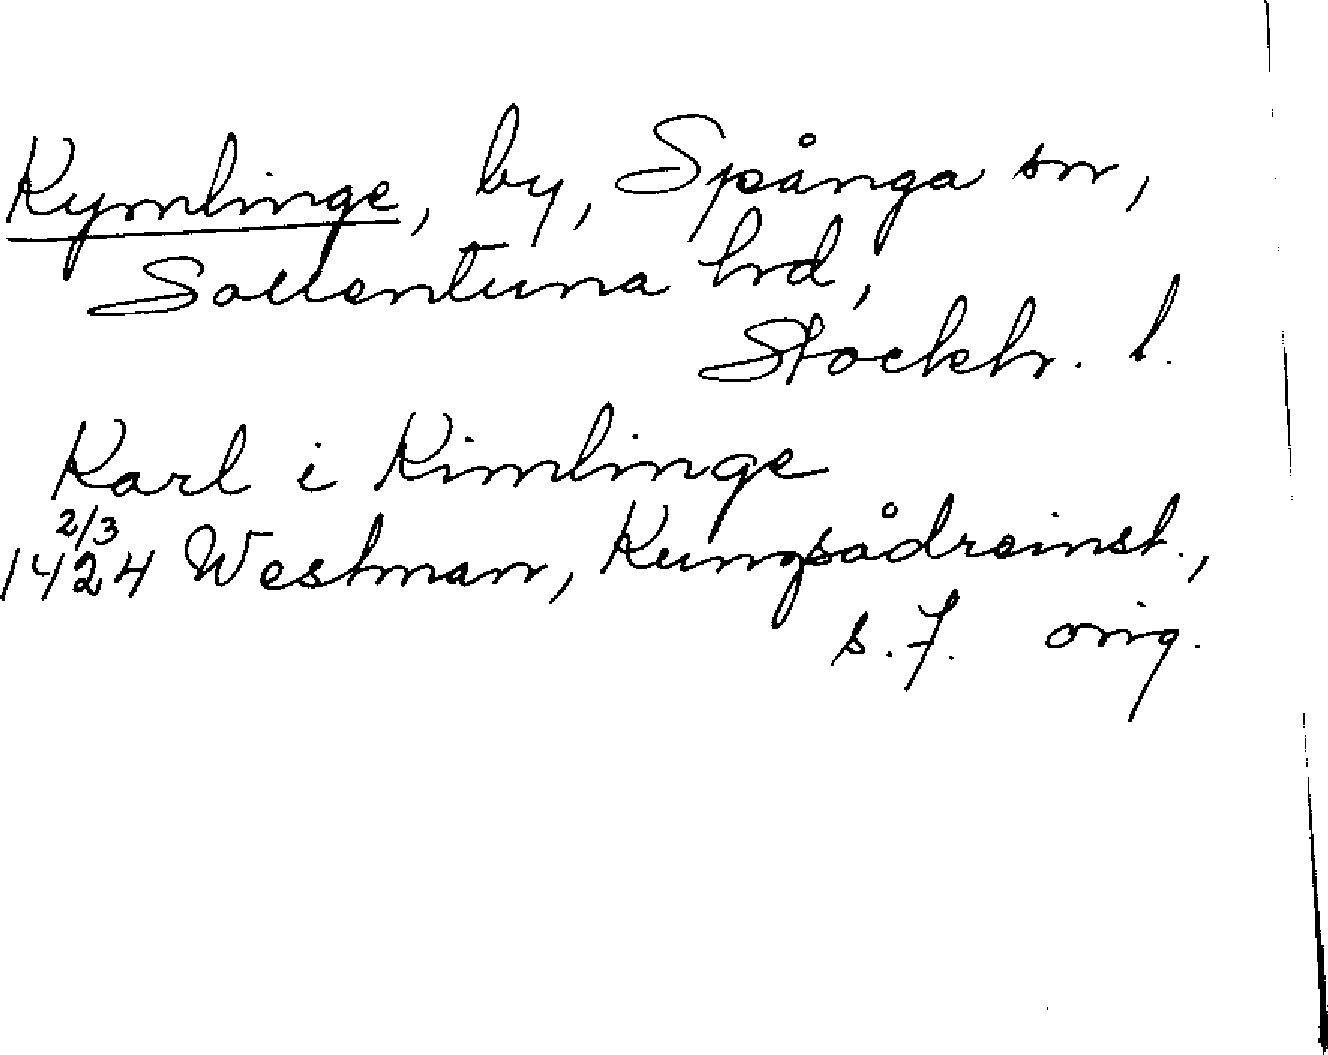 Kymlinge, by, Spånga sn,
Sollentuna hrd,
Stockh. l.
Karl i Kimlinge
2/3
1424 Westman, Kungsådreinst.,
s. 7. orig.